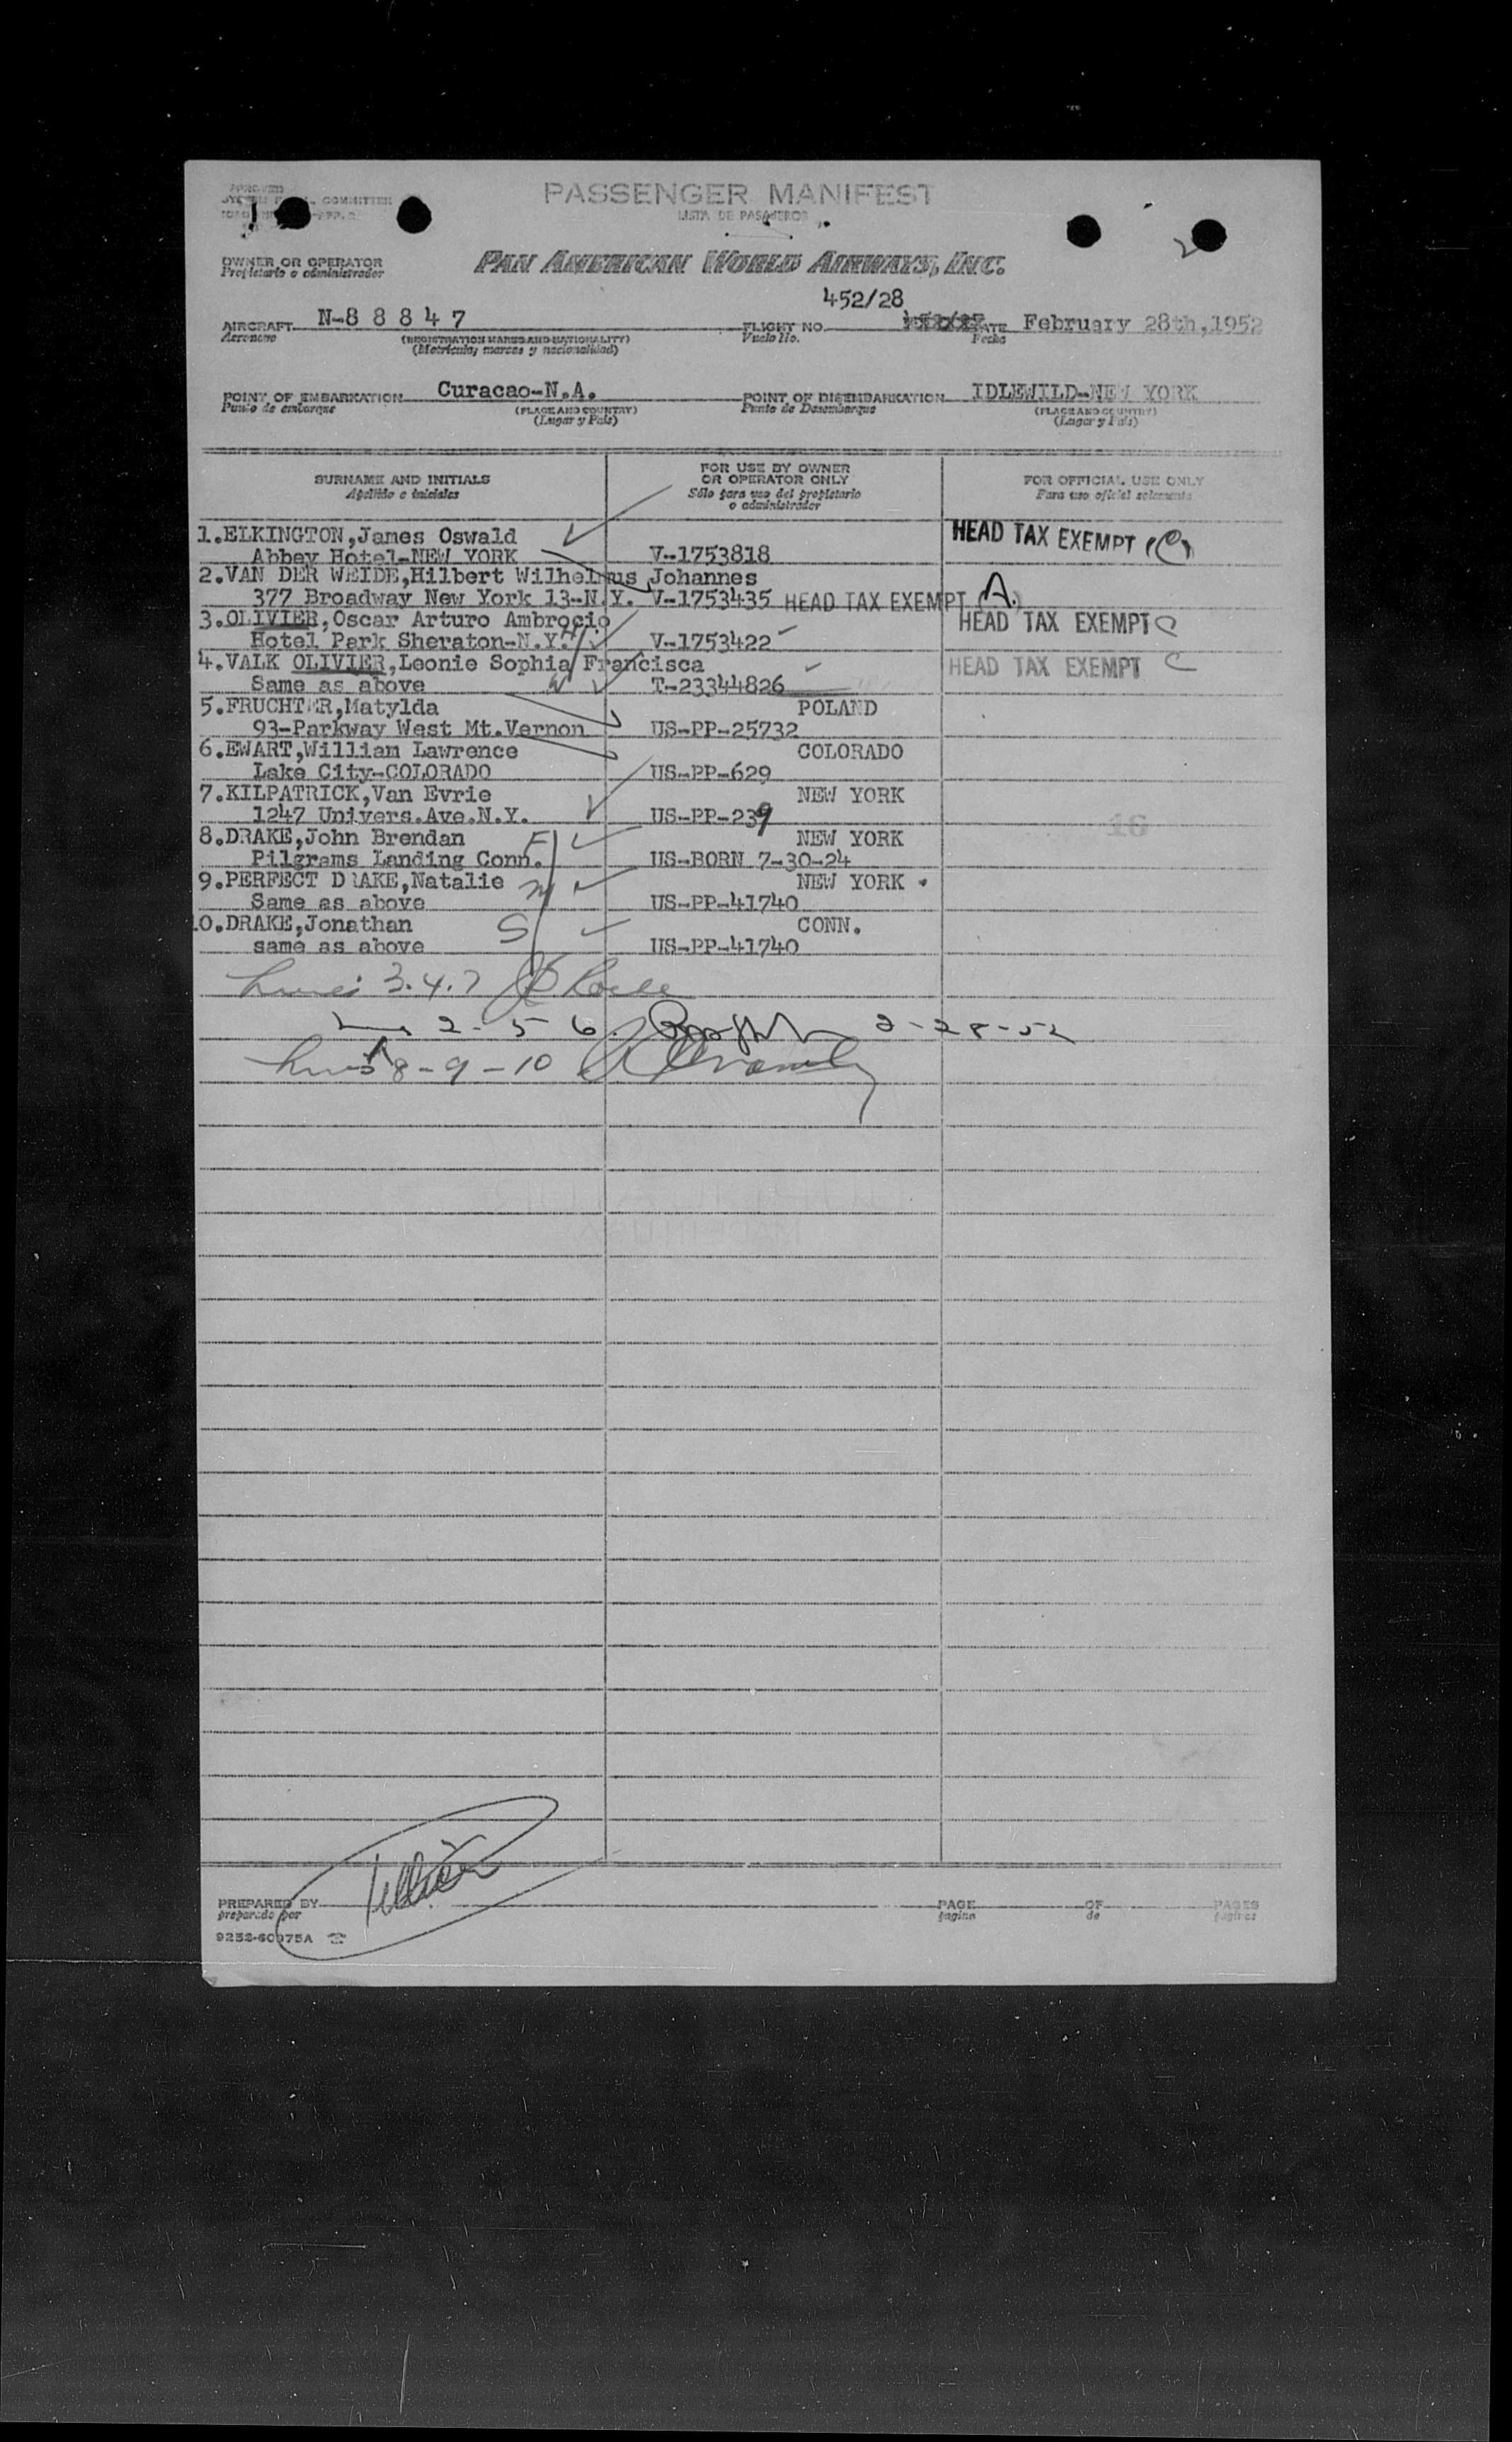 PASSENGER MANIFEST
LISTA DE PASAJEROS
OWNER OR OPERATOR
Propietario o administrador
PAN AMERICAN WORLD AIRWAYS, INC.
452/28
AIRCRAFT N-8 8 8 4 7 FLIGHT NO. DATE February 28th,1952
Aeronave (REGISTRATION MARKS AND NATIONALITY) Vuelo No. Fecha
(Matrícula, marcas y nacionalidad)
POINT OF EMBARKATION Curacao-N.A. POINT OF DISEMBARKATION IDLEWILD-NEW YORK
Punto de embarque (PLACE AND COUNTRY) Punto de Desembarque (PLACE AND COUNTRY)
(Lugar y País) (Lugar y País)
SURNAME AND INITIALS FOR USE BY OWNER OR OPERATOR ONLY FOR OFFICIAL USE ONLY
Apellido e iniciales Sólo para uso del propietario o administrador Para uso oficial solamente
1.ELKINGTON,James Oswald HEAD TAX EXEMPT (C)
Abbey Hotel-NEW YORK V-1753818
2.VAN DER WEIDE,Hilbert Wilhelmus Johannes
377 Broadway New York 13-N.Y. V-1753435 HEAD TAX EXEMPT (A.)
3.OLIVIER,Oscar Arturo Ambrocio HEAD TAX EXEMPT C
Hotel Park Sheraton-N.Y. H V-1753422
4.VALK OLIVIER,Leonie Sophia Francisca HEAD TAX EXEMPT C
Same as above W T-23344826
5.FRUCHTER,Matylda POLAND
93-Parkway West Mt.Vernon US-PP-25732
6.EWART,William Lawrence COLORADO
Lake City-COLORADO US-PP-629
7.KILPATRICK,Van Evrie NEW YORK
1247 Univers.Ave.N.Y. US-PP-239
8.DRAKE,John Brendan F NEW YORK
Pilgrams Landing Conn. US-BORN 7-30-24
9.PERFECT DRAKE,Natalie M NEW YORK
Same as above US-PP-41740
10.DRAKE,Jonathan S CONN.
same as above US-PP-41740
Lines 3.4.7
2-5 6 2-28-52
Lines 8-9-10
PREPARED BY PAGE OF PAGES
preparado por página de páginas
9252-60975A